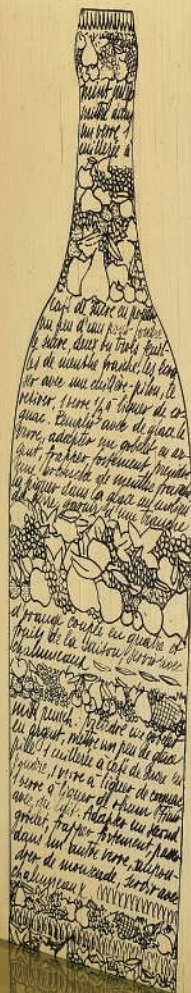 mint julep
mettre dans
un verre, 1
cuillerée à
café de sucre en poudre
un peu d'eau pour fondre
le sucre, deux ou trois feuil-
les de menthe fraîche, les broy-
er avec une cuillère-pilon, les
retirer, 1 verre 1/2 à liqueur de co-
gnac. Emplir avec de glace le
verre, adapter un gobelet en ar-
gent, frapper fortement, prendre
une branche de menthe fraîche
la piquer dans la glace en
garnir d'une tranche
d'orange coupée en quatre et
fruits de la saison. Servir avec
chalumeaux
punch: Préparer un gobelet
en argent, mettre un peu de glace
pilée, 1 cuillerée à café de sucre en
poudre, 1 verre à liqueur de cognac
1 verre à liqueur de rhum, finir
avec du lait. Adapter un second
gobelet, frapper fortement, passer
dans un autre verre, saupou-
drer de muscade, servir avec
chalumeaux